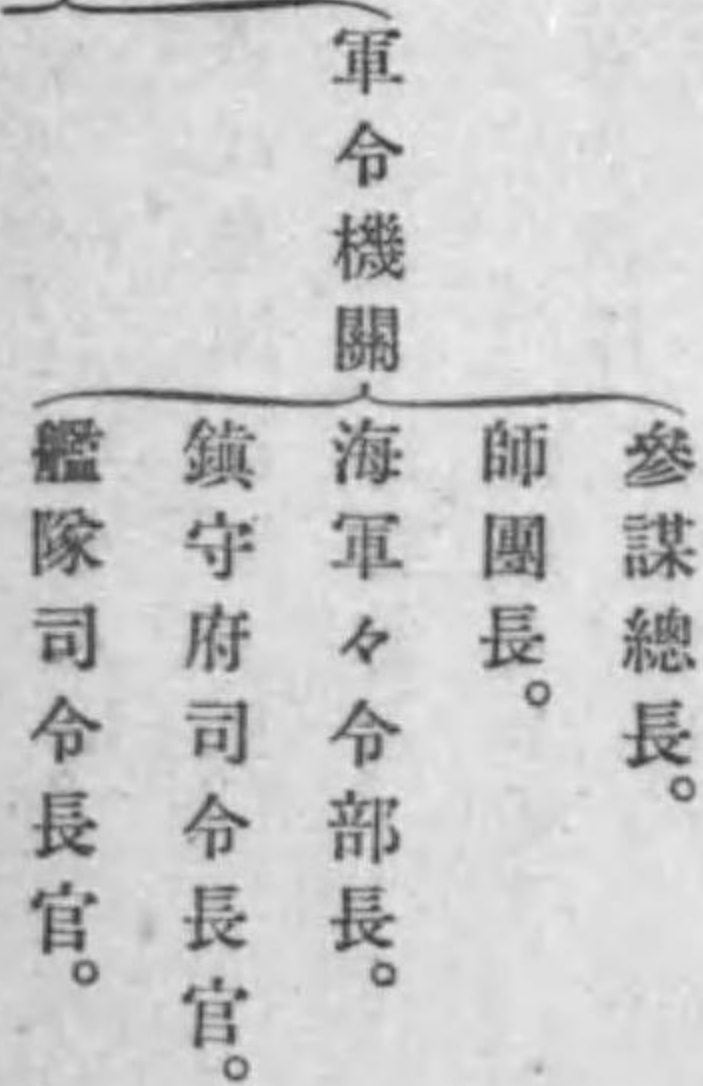 軍令機關
參謀總長。
師團長。
海軍々令部長。
鎭守府司令長官。
艦隊司令長官。